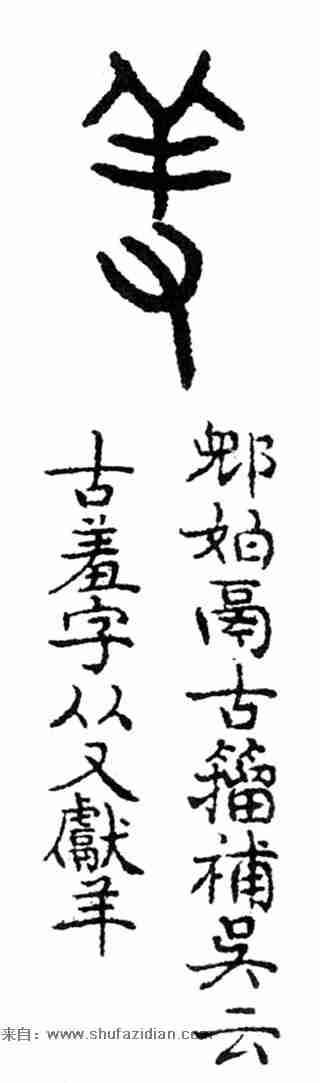 羞
郳始鬲古籀補吳云
古羞字从又獻羊
来自：www.shufazidian.com